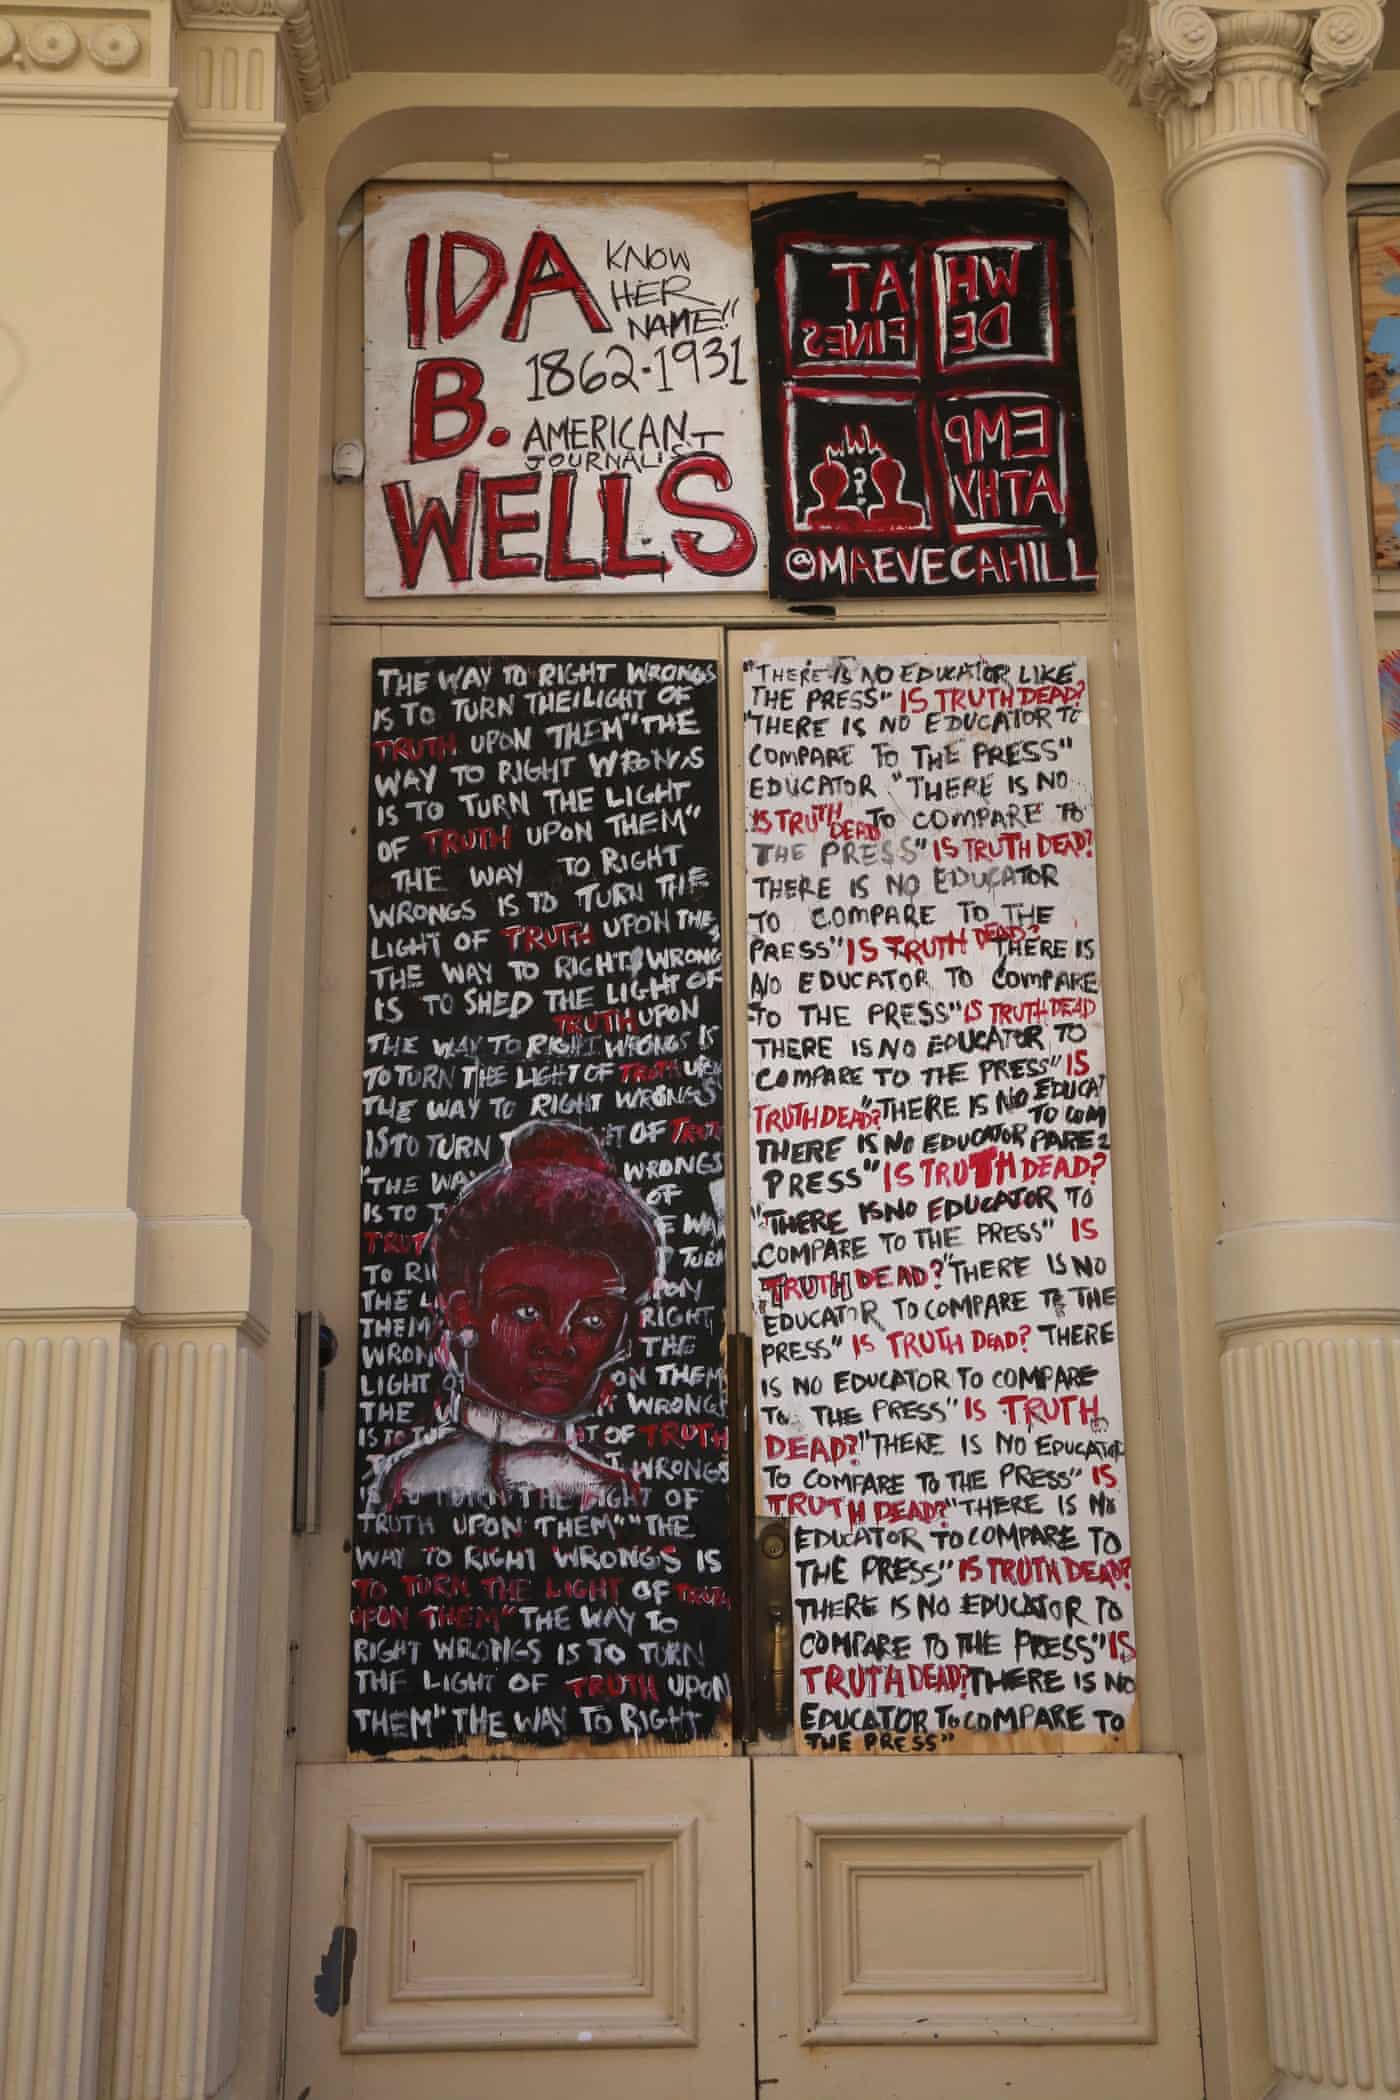 IDA
KNOW
HER
NAME!!
1862-1931
B.
AMERICAN
JOURNALIST
WELLS
WH AT
DE FINES
EMP
ATHY
?
@MAEVECAHILL
THE WAY TO RIGHT WRONGS
IS TO TURN THE LIGHT OF
TRUTH UPON THEM" "THE
WAY TO RIGHT WRONGS
IS TO TURN THE LIGHT
OF TRUTH UPON THEM"
THE WAY TO RIGHT
WRONGS IS TO TURN THE
LIGHT OF TRUTH UPON THE,,
THE WAY TO RIGHT WRONG
IS TO SHED THE LIGHT OF
TRUTH UPON
THE WAY TO RIGHT WRONGS IS
TO TURN THE LIGHT OF TRUTH UPON
THE WAY TO RIGHT WRONGS
IS TO TURN T HT OF TRUTH
"THE WAY WRONGS
IS TO T OF
TRUT E WAY
TO RI TURN
THE L PON
THEM RIGHT
WRON THE
LIGHT O ON THEM
THE W " WRONGS
IS TO TUR HT OF TRUTH
T WRONGS
IS TO TURN THE LIGHT OF
TRUTH UPON THEM" "THE
WAY TO RIGHT WRONGS IS
TO TURN THE LIGHT OF TRUTH
UPON THEM" THE WAY TO
RIGHT WRONGS IS TO TURN
THE LIGHT OF TRUTH UPON
THEM" THE WAY TO RIGHT
"THERE IS NO EDUCATOR LIKE
THE PRESS" IS TRUTH DEAD?
"THERE IS NO EDUCATOR TO
COMPARE TO THE PRESS"
EDUCATOR "THERE IS NO
IS TRUTH DEAD TO COMPARE TO
THE PRESS" IS TRUTH DEAD?
THERE IS NO EDUCATOR
TO COMPARE TO THE
PRESS" IS TRUTH DEAD? THERE IS
NO EDUCATOR TO COMPARE
TO THE PRESS" IS TRUTH DEAD
THERE IS NO EDUCATOR TO
COMPARE TO THE PRESS" IS
TRUTH DEAD? "THERE IS NO EDUCAT
TO COM
THERE IS NO EDUCATOR PARE 2
PRESS" IS TRUTH DEAD?
"THERE IS NO EDUCATOR TO
COMPARE TO THE PRESS" IS
TRUTH DEAD? "THERE IS NO
EDUCATOR TO COMPARE TO THE
PRESS" IS TRUTH DEAD? THERE
IS NO EDUCATOR TO COMPARE
TO THE PRESS" IS TRUTH
DEAD? "THERE IS NO EDUCATOR
TO COMPARE TO THE PRESS" IS
TRUTH DEAD? "THERE IS NO
EDUCATOR TO COMPARE TO
THE PRESS" IS TRUTH DEAD?
THERE IS NO EDUCATOR TO
COMPARE TO THE PRESS" IS
TRUTH DEAD? THERE IS NO
EDUCATOR TO COMPARE TO
THE PRESS"